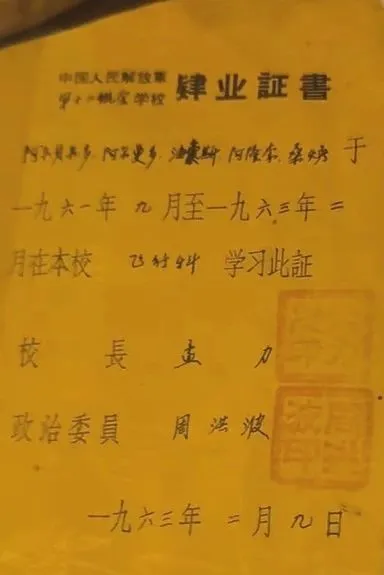 中国人民解放軍
第十二航空学校 肄业証書
阿尔贝共多. 阿尔曼多. 阿隆索. 桑切 于
一九六一年 九 月至一九六三年 二
月在本校 飞行科 学习此証
校 長 孟 力
政治委員 周洪波
一九六三年 二 月 九 日